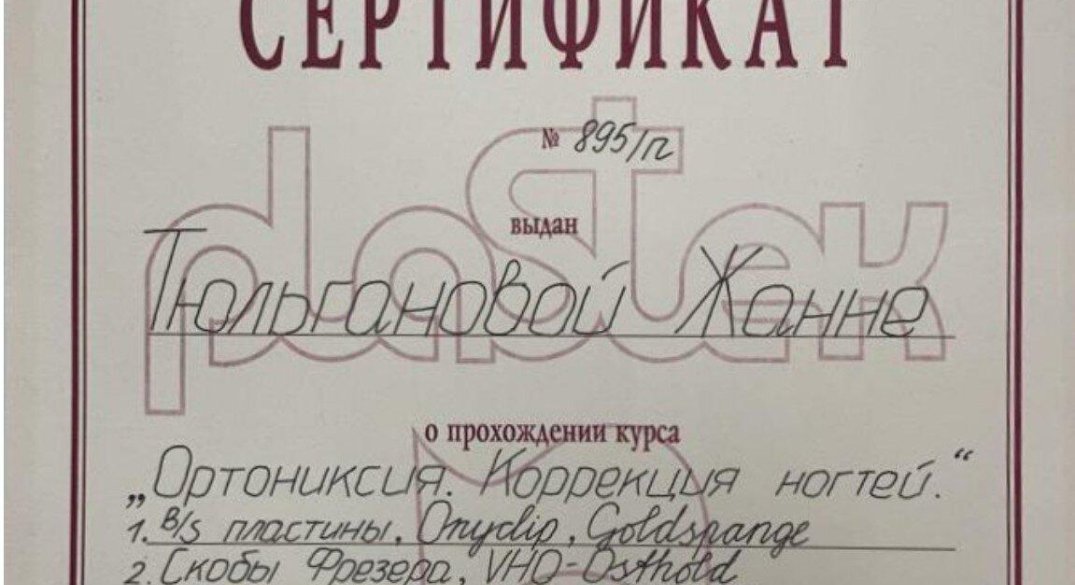 СЕРТИФИКАТ
№ 895/п
plastek
выдан
Тюльгановой Жанне
о прохождении курса
„Ортониксия. Коррекция ногтей.“
1. B/S пластины, Onyclip, Goldspange
2. Скобы Фрезера, VHO-Osthold